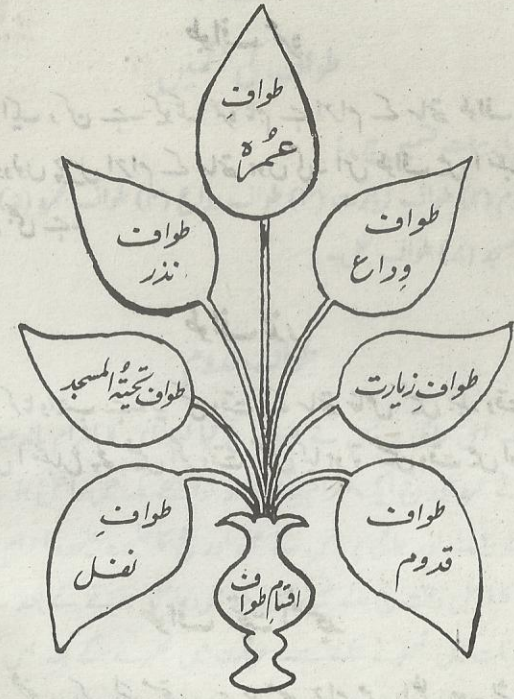 طوافِ
عُمرہ
طواف
وِداع
طواف
نذر
طوافِ زیارت
طواف تحیۃُ المسجد
طواف
قدوم
طوافِ
نفل
اقسامِ طواف